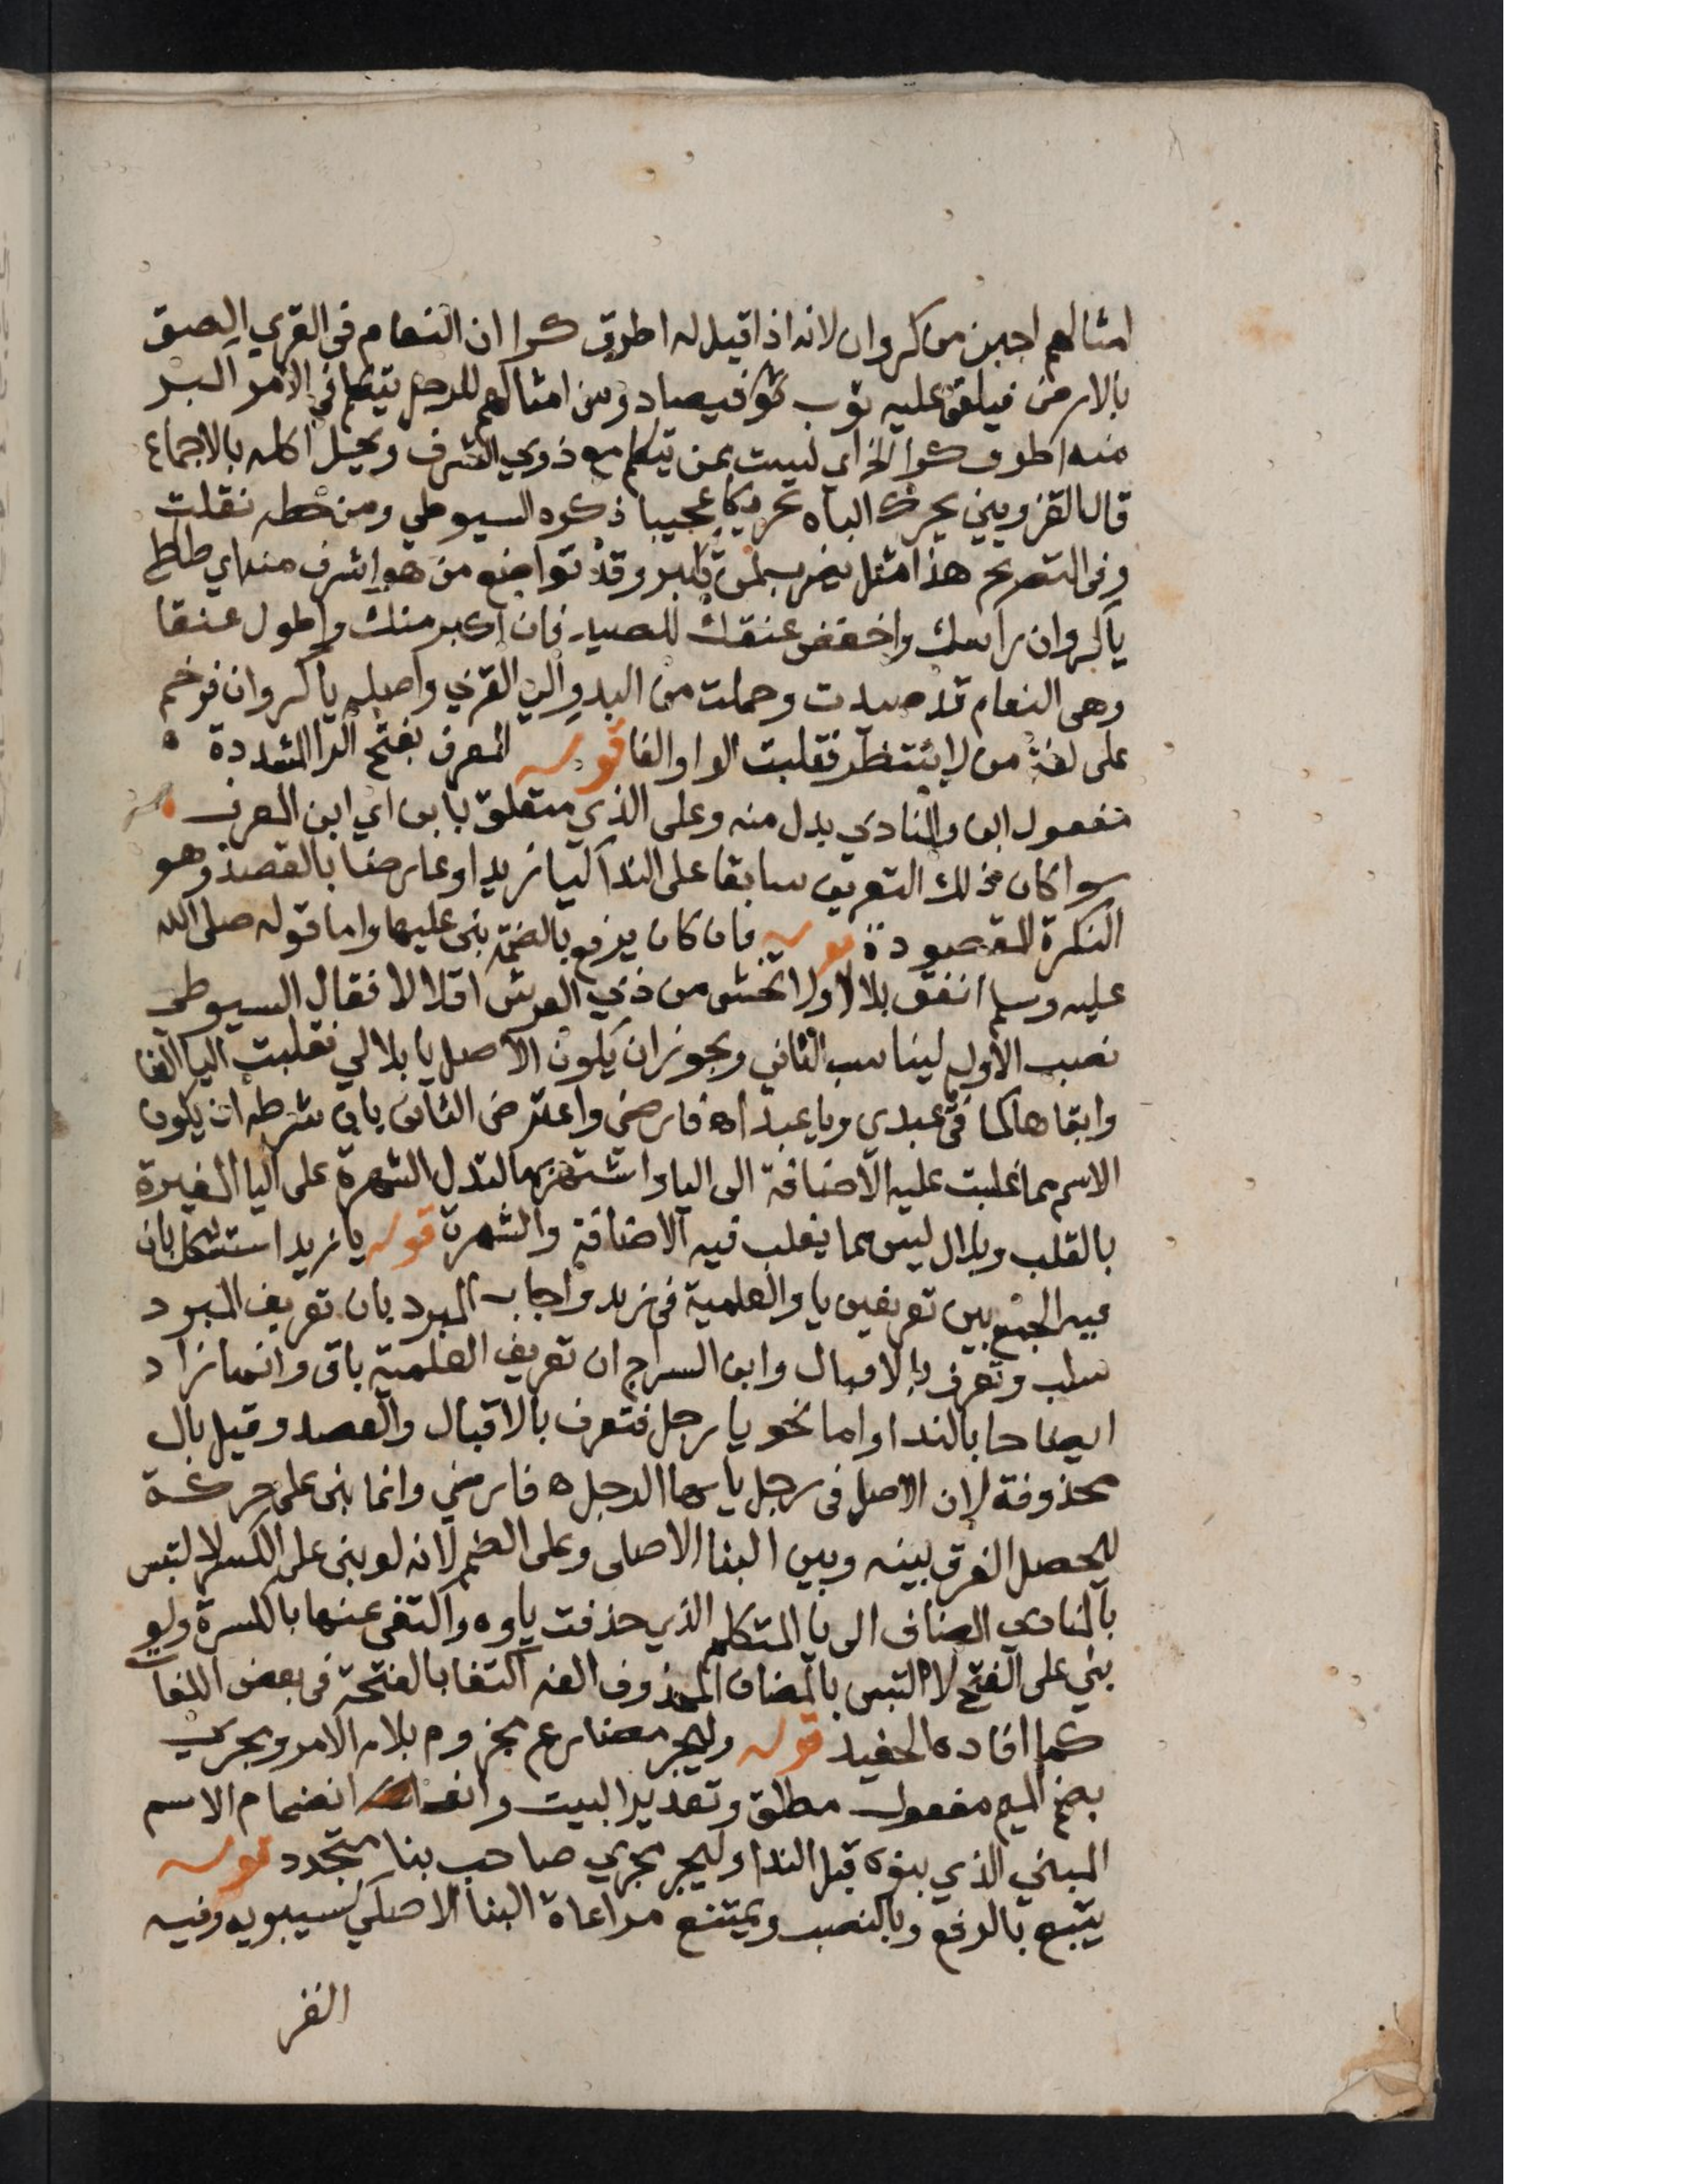 امثالهم اجبن من كروان لانه اذا قيل له اطرق كرا ان النعام في القري الصق
بالارض فيلقي عليه ثوب فيصاد ومن امثالهم للرجل يتكلم في الامر اكبر
منه اطرق كرا الخ اي ليست بمن يتكلم مع ذوي الشرف وقيل اكله بالاجماع
قال القزويني يحرك الباه تحريكا عجيبا ذكره السيوطي ومن خطه نقلت
وفي التصريح هذا مثل يضرب لمن تكبر وقد تواضع من هو اشرف منه اي طاطا
ياكروان راسك واخفض عنقك للصيد فان اكبر منك واطول عنقا
وهي النعام قد صيدت وحملت من البدو الي القري واصله ياكروان فرخم
على لغة من لا ينتظر فقلبت الواو الفا قوله المعرف بفتح الرا المشددة ه
مفعول ابن والمنادي بدل منه وعلى الذي متعلق بابن اي ابن المعرف
سوا كان ذلك التعريف سابقا على الندا كيا زيد او عارضا بالقصد وهو
النكرة المقصودة قوله فان كان يرفع بالضمة بني عليها واما قوله صلى الله
عليه وسلم انفق بلالا ولا تخش من ذي العرش اقلالا فقال السيوطي
نصب الاول ليناسب الثاني ويجوز ان يكون الاصل يا بلالي فقلبت اليا الفا
وابقاها كما في عبدي ويا عبدا ه فارضي واعترض الثاني بان شرطه ان يكون
الاسم مما غلبت عليه الاضافة الى اليا واشتهر بها لتدل الشهرة على اليا المغيرة
بالقلب وبلال ليس مما يغلب فيه الاضافة والشهرة قوله يا زيد استشكل بان
فيه الجمع بين تعريفين يا والعلمية في زيد واجاب المبرد بان تعريف المبرد
سلب وتعرف بالاقبال وابن السراج ان تعريف العلمية باق وانما زاد
ايضاحا بالندا واما نحو يا رجل فتعرف بالاقبال والقصد وقيل بال
محذوفة لان الاصل في رجل يا ايها الرجل ه فارضي وانما بني على حركة
ليحصل الفرق بينه وبين البنا الاصلي وعلى الضم لانه لو بني على الكسر لالتبس
بالمنادي المضاف الى يا المتكلم الذي حذفت ياوه واكتفي عنها بالكسرة ولو
بني على الفتح لالتبس بالمضاف المحذوف الفه اكتفا بالفتحة في بعض اللغات
كما افاده الحفيد قوله وليجر مضارع مجزوم بلام الامر ومجري
بضم الميم مفعول مطلق وتقدير البيت وانو انضمام الاسم
المبني الذي بنوه قبل الندا وليجر مجري صاحب بنا متجدد قوله
يتبع بالرفع وبالنصب ويمتنع مراعاة البنا الاصلي كسيبويه وفيه
الفر